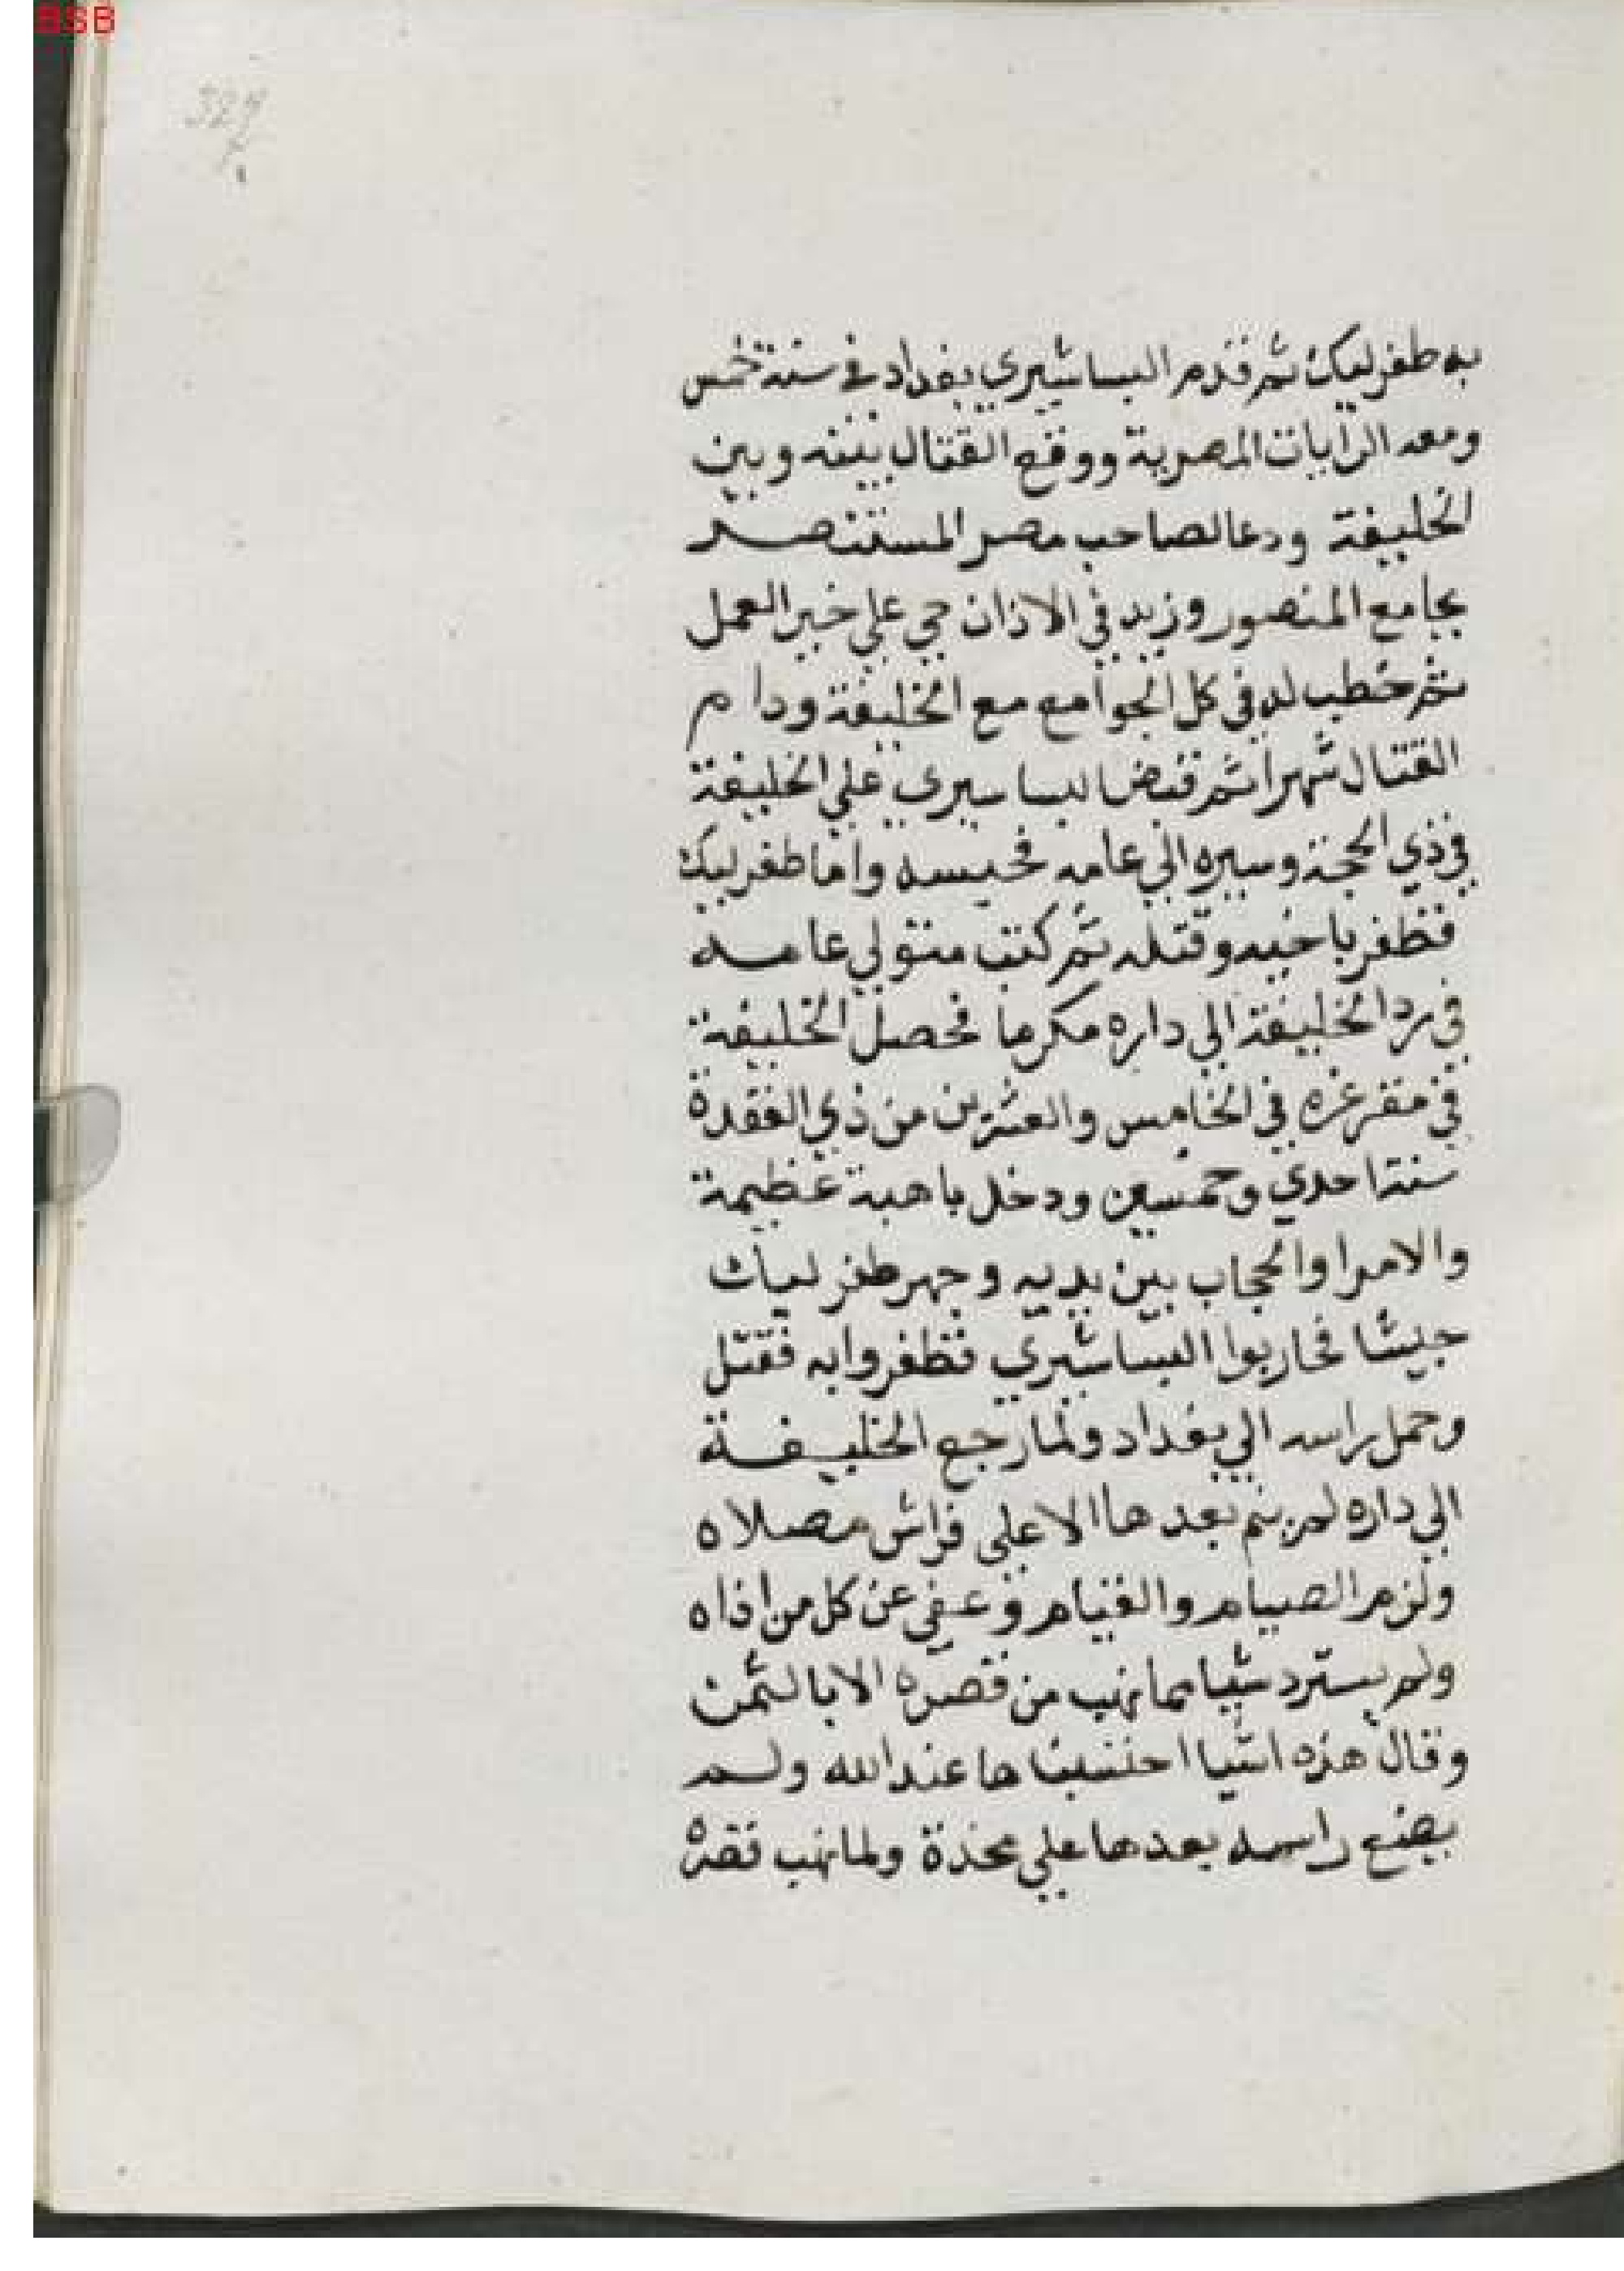 BSB
327
به طغرلبك ثم قدم البساشيري بغداد في سنة خمس
ومعه الرايات المصرية ووقع القتال بينه وبين
الخليفة ودعا لصاحب مصر المستنصر
بجامع المنصور وزيد في الاذان حي علي خير العمل
ثم خطب له في كل الجوامع مع الخليفة ودام
القتال شهرا ثم قبض البساسيري علي الخليفة
في ذي الحجة وسيره الي عامه فحبسه واما طغرلبك
فظفر باخيه وقتله ثم كتب متولي عامه
في رد الخليفة الي داره مكرما فحصل الخليفة
في مقر عزه في الخامس والعشرين من ذي القعدة
سنة احدي وخمسين ودخل باهبة عظيمة
والامرا والحجاب بين يديه وجهر طغرلبك
جيشا فحاربوا البساشيري فظفروا به فقتل
وحمل راسه الي بغداد ولما رجع الخليفة
الي داره لم ينم بعدها الا علي فراش مصلاه
ولزم الصيام والقيام وعفي عن كل من اذاه
ولم يسترد شيا مما نهب من قصره الا بالثمن
وقال هذه اشيا احتسبناها عند الله ولم
يضع راسه بعدها علي مخدة ولما نهب قصره